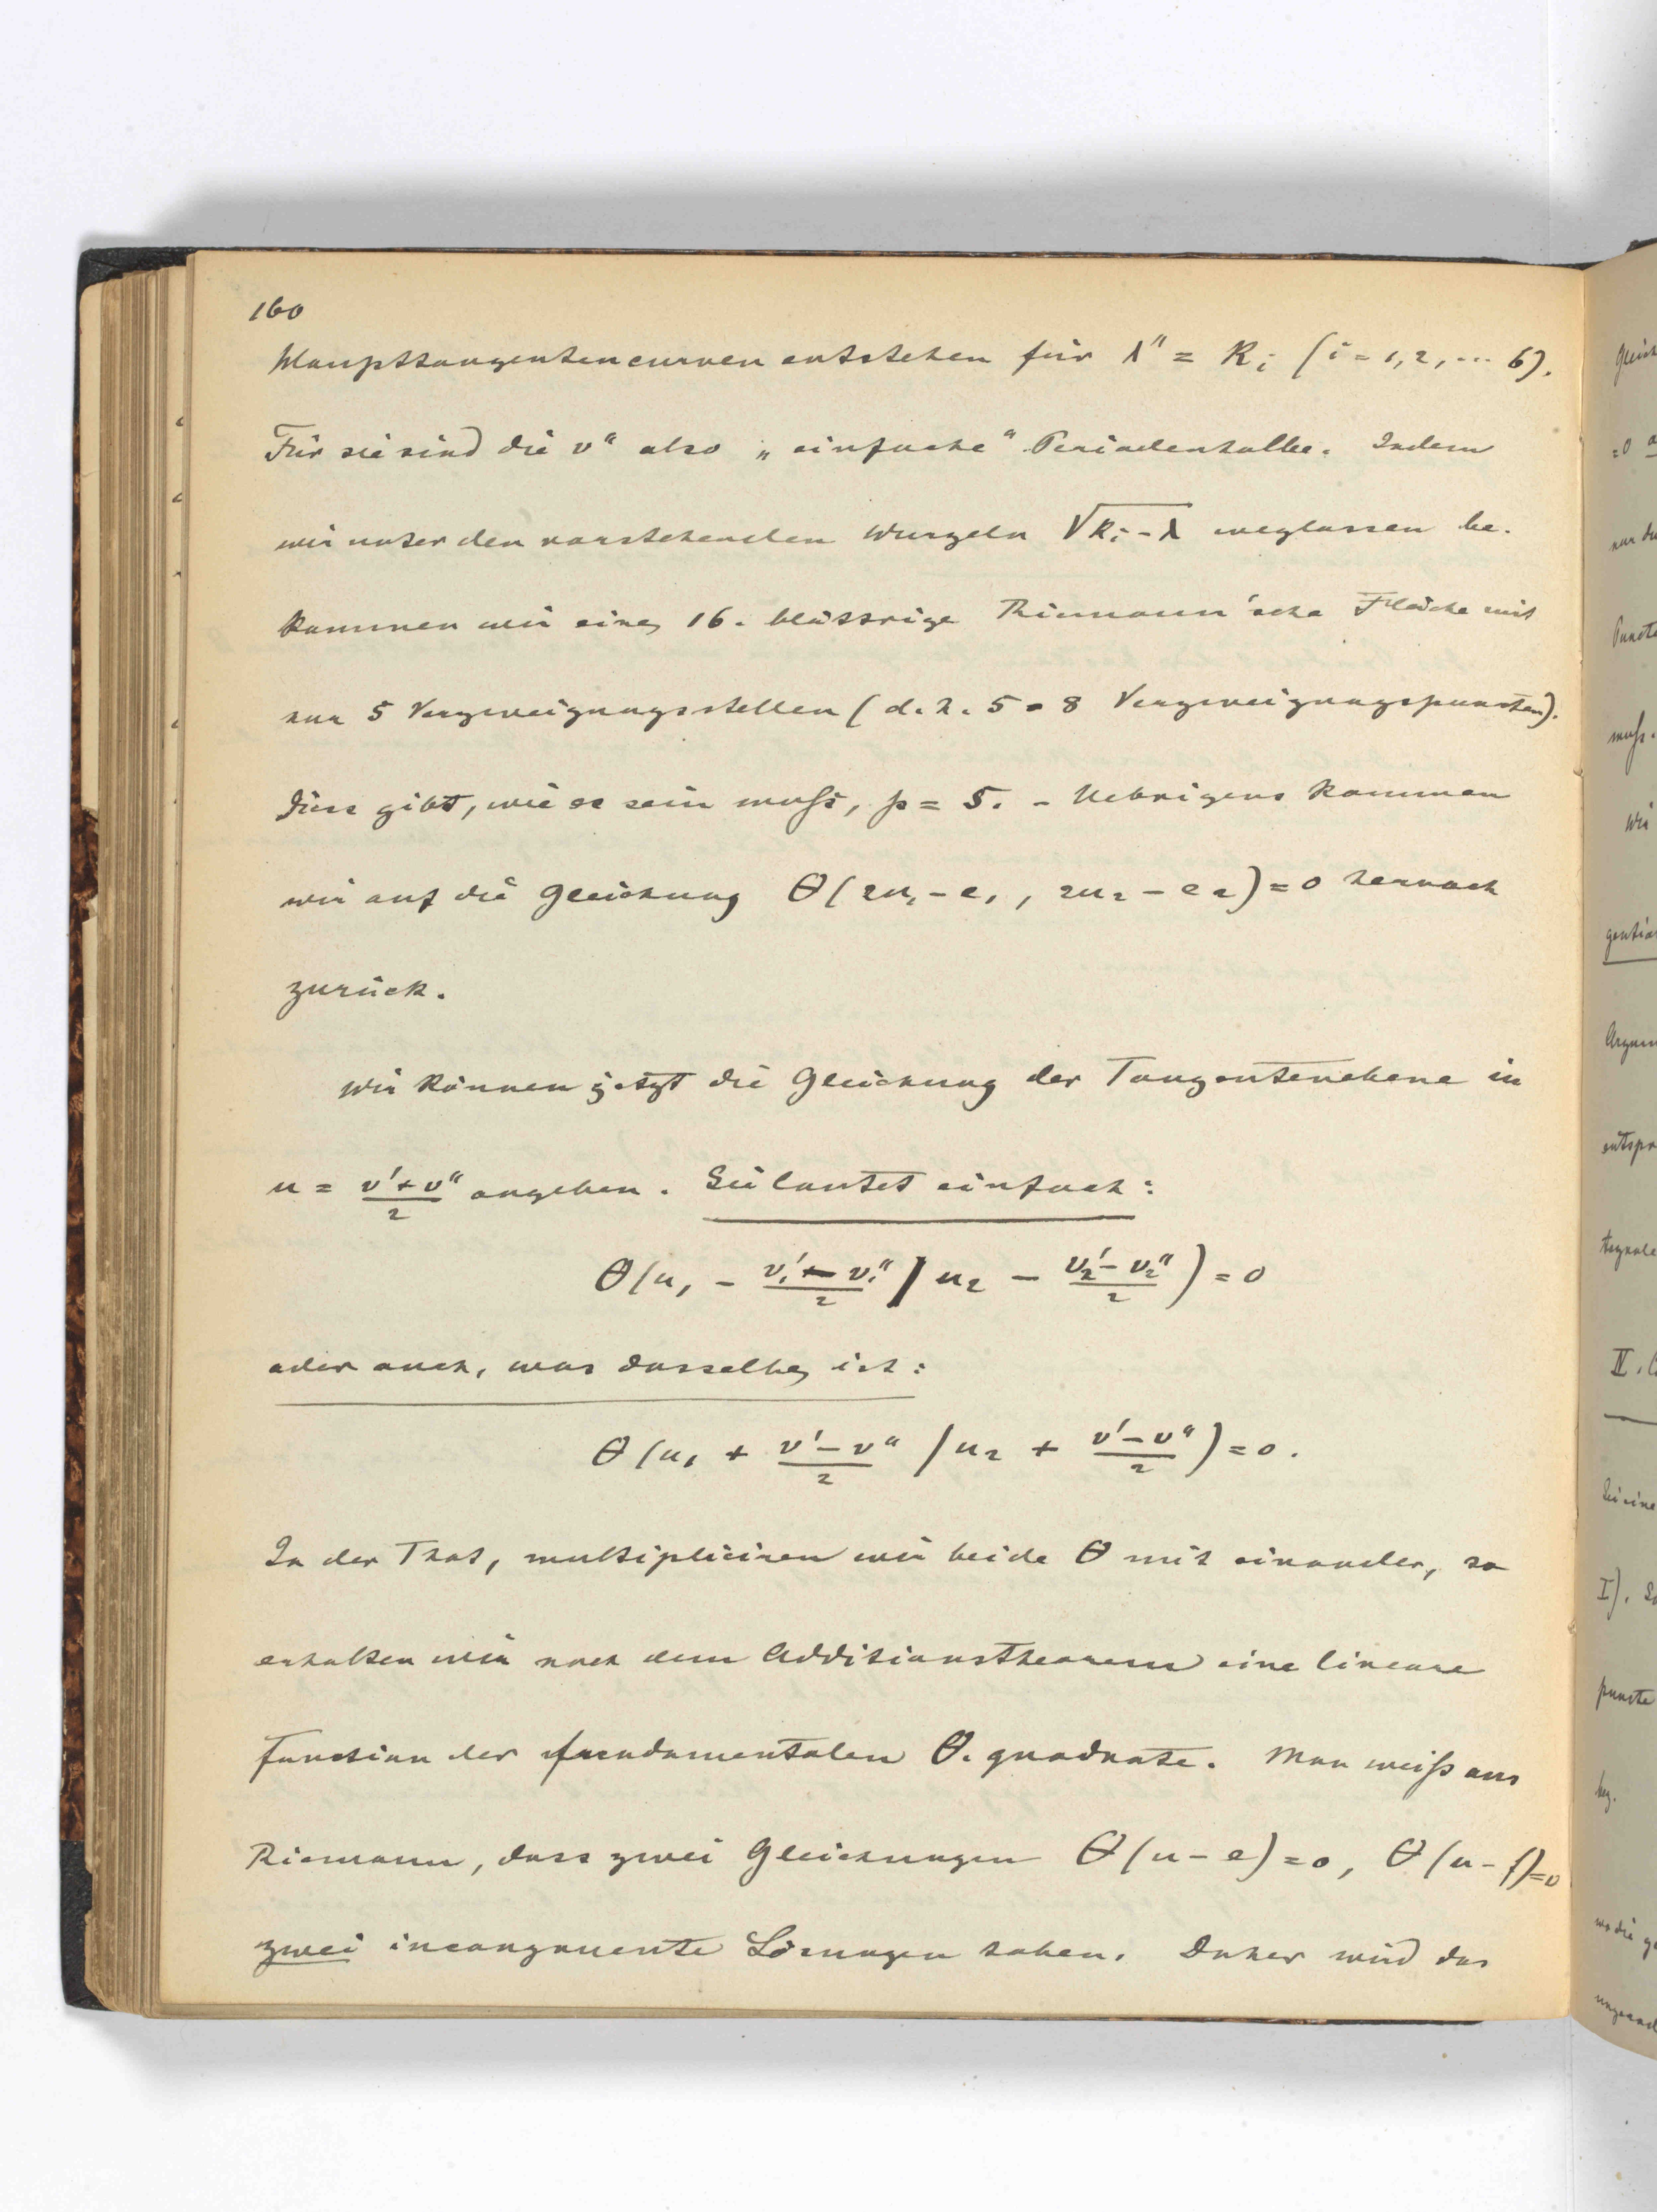 160
Haupttangentencurven entstehen für λ" = k_i (i = 1, 2, ... 6).
Für sie sind die v" also „einfache" Periodenhalbe. Indem
wir unter den vorstehenden Wurzeln √(k_i - λ) weglassen be-
kommen wir eine 16-blättrige Riemann'sche Fläche mit
nur 5 Verzweigungsstellen (d. h. 5 · 8 Verzweigungspuncten).
Diess gibt, wie es sein muss, p = 5. - Uebrigens kommen
wir auf die Gleichung θ(2u_1 - e_1, 2u_2 - e_2) = 0 hernach
zurück.
Wir können jetzt die Gleichung der Tangentenebene in
u = (v' + v")/2 angeben. Sie lautet einfach:
θ(u_1 - (v_1' - v_1")/2 | u_2 - (v_2' - v_2")/2) = 0
oder auch, was dasselbe ist:
θ(u_1 + (v' - v")/2 | u_2 + (v' - v")/2) = 0.
In der That, multipliciren wir beide θ mit einander, so
erhalten wir nach dem Additionstheorem eine lineare
Function der fundamentalen θ-quadrate. Man weiß aus
Riemann, dass zwei Gleichungen θ(u - e) = 0, θ(u - f) = 0
zwei incongruente Lösungen haben. Daher wird das